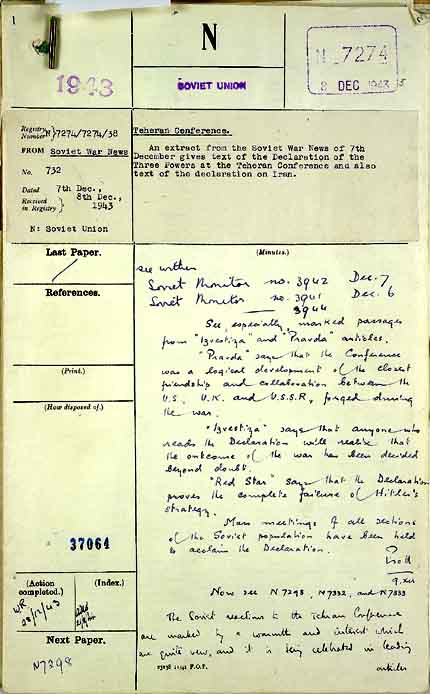 1
N
N 7274
8 DEC 1943
5
1943
SOVIET UNION
Registry Number } N 7274/7274/38
FROM Soviet War News
No. 732
Dated 7th Dec.,
Received in Registry } 8th Dec., 1943
N: Soviet Union
Teheran Conference.
An extract from the Soviet War News of 7th
December gives text of the Declaration of the
Three Powers at the Teheran Conference and also
text of the declaration on Iran.
Last Paper.
References.
(Print.)
(How disposed of.)
37064
(Action completed.)
(Index.)
WR
28/12/43
Next Paper.
N7298
(Minutes.)
see within
Soviet Monitor no. 3942 Dec. 7
Soviet Monitor no. 3941 Dec. 6
3944
See, especially, marked passages
from "Izvestiya" and "Pravda" articles.
"Pravda" says that the Conference
was a logical development of the closest
friendship and collaboration between the
U.S., U.K. and U.S.S.R, forged during
the war.
"Izvestiya" says that anyone who
reads the Declaration will realise that
the outcome of the war has been decided
beyond doubt.
"Red Star" says that the Declaration
proves the complete failure of Hitler's
strategy.
Mass meetings of all sections
of the Soviet population have been held
to acclaim the Declaration.
9.xii
Now see N 7298, N7332, and N7333
The Soviet reactions to the Tehran Conference
are marked by a warmth and interest which
are quite new, and it is being celebrated in leading
articles
F.O.P.